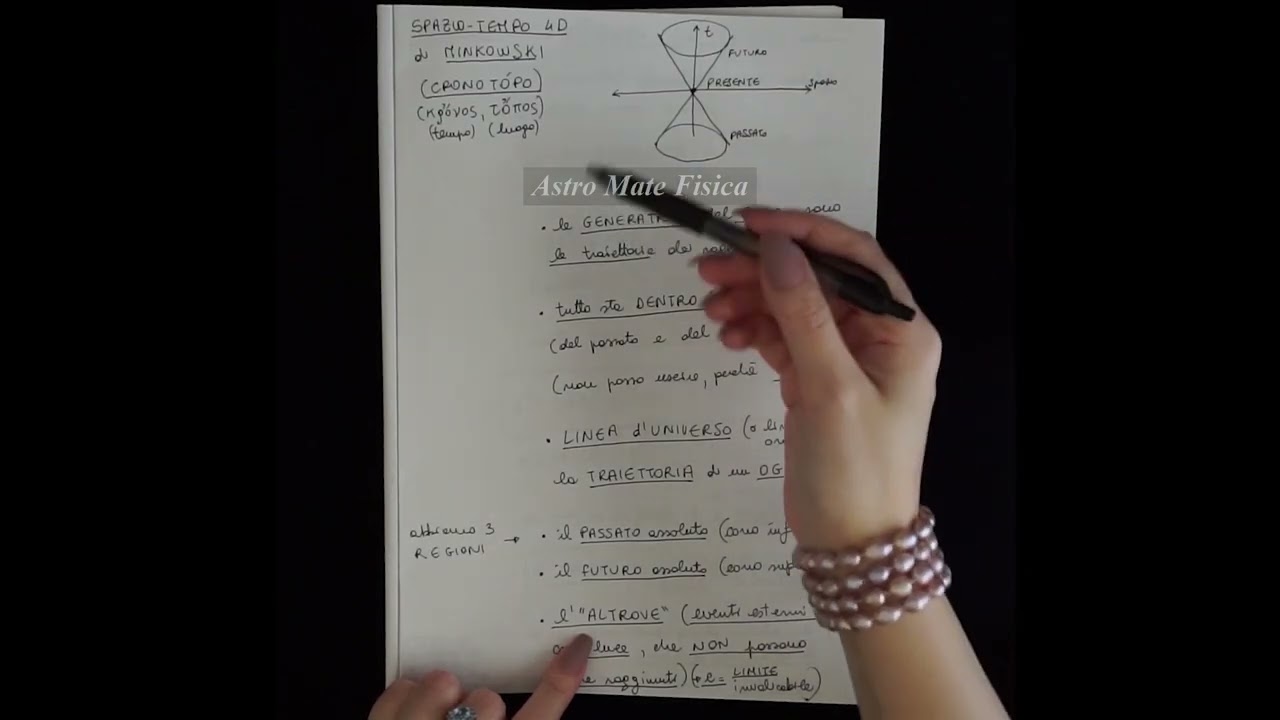 SPAZIO-TEMPO 4D
di MINKOWSKI
(CRONOTÓPO)
(κρόνος, τόπος)
(tempo) (luogo)
t
FUTURO
PRESENTE
spazio
PASSATO
Astro Mate Fisica
• le
sono
le traiettorie dei
• tutto sta DENTRO
(del passato e del
(non posso uscire, perché
• LINEA d'UNIVERSO (o
la TRAIETTORIA di un
abbiamo 3
REGIONI →
• il PASSATO assoluto (cono
• il FUTURO assoluto (cono
• l'"ALTROVE" (eventi esterni
luce, che NON possono
raggiunti) (c = LIMITE
invalicabile)